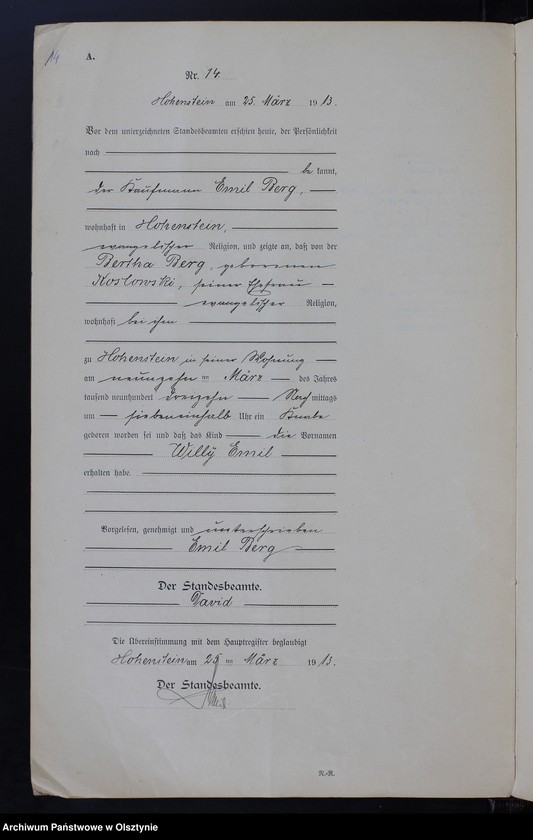 14
A.
Nr. 14.
Hohenstein am 25. März 1913.
Vor dem unterzeichneten Standesbeamten erschien heute, der Persönlichkeit
nach
be kannt,
der Kaufmann Emil Berg,
wohnhaft in Hohenstein,
evangelischer Religion, und zeigte an, daß von der
Bertha Berg, geborenen
Koslowski, seiner Ehefrau
evangelischer Religion,
wohnhaft bei ihm
zu Hohenstein in seiner Wohnung
am neunzehn ten März des Jahres
tausend neunhundert dreizehn Nach mittags
um siebeneinhalb Uhr ein Knabe
geboren worden sei und daß das Kind die Vornamen
Willy Emil
erhalten habe.
Vorgelesen, genehmigt und unterschrieben
Emil Berg
Der Standesbeamte.
David
Die Übereinstimmung mit dem Hauptregister beglaubigt
Hohenstein am 25 ten März 1913.
Der Standesbeamte.
N.-R.
Archiwum Państwowe w Olsztynie